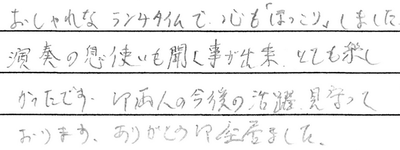 おしゃれなランチタイムで、心も「ほっこり」しました。
演奏の息使いも聞く事が出来、とても楽し
かったです。印両人の今後の活躍、見守って
おります。ありがとう印座居ました。